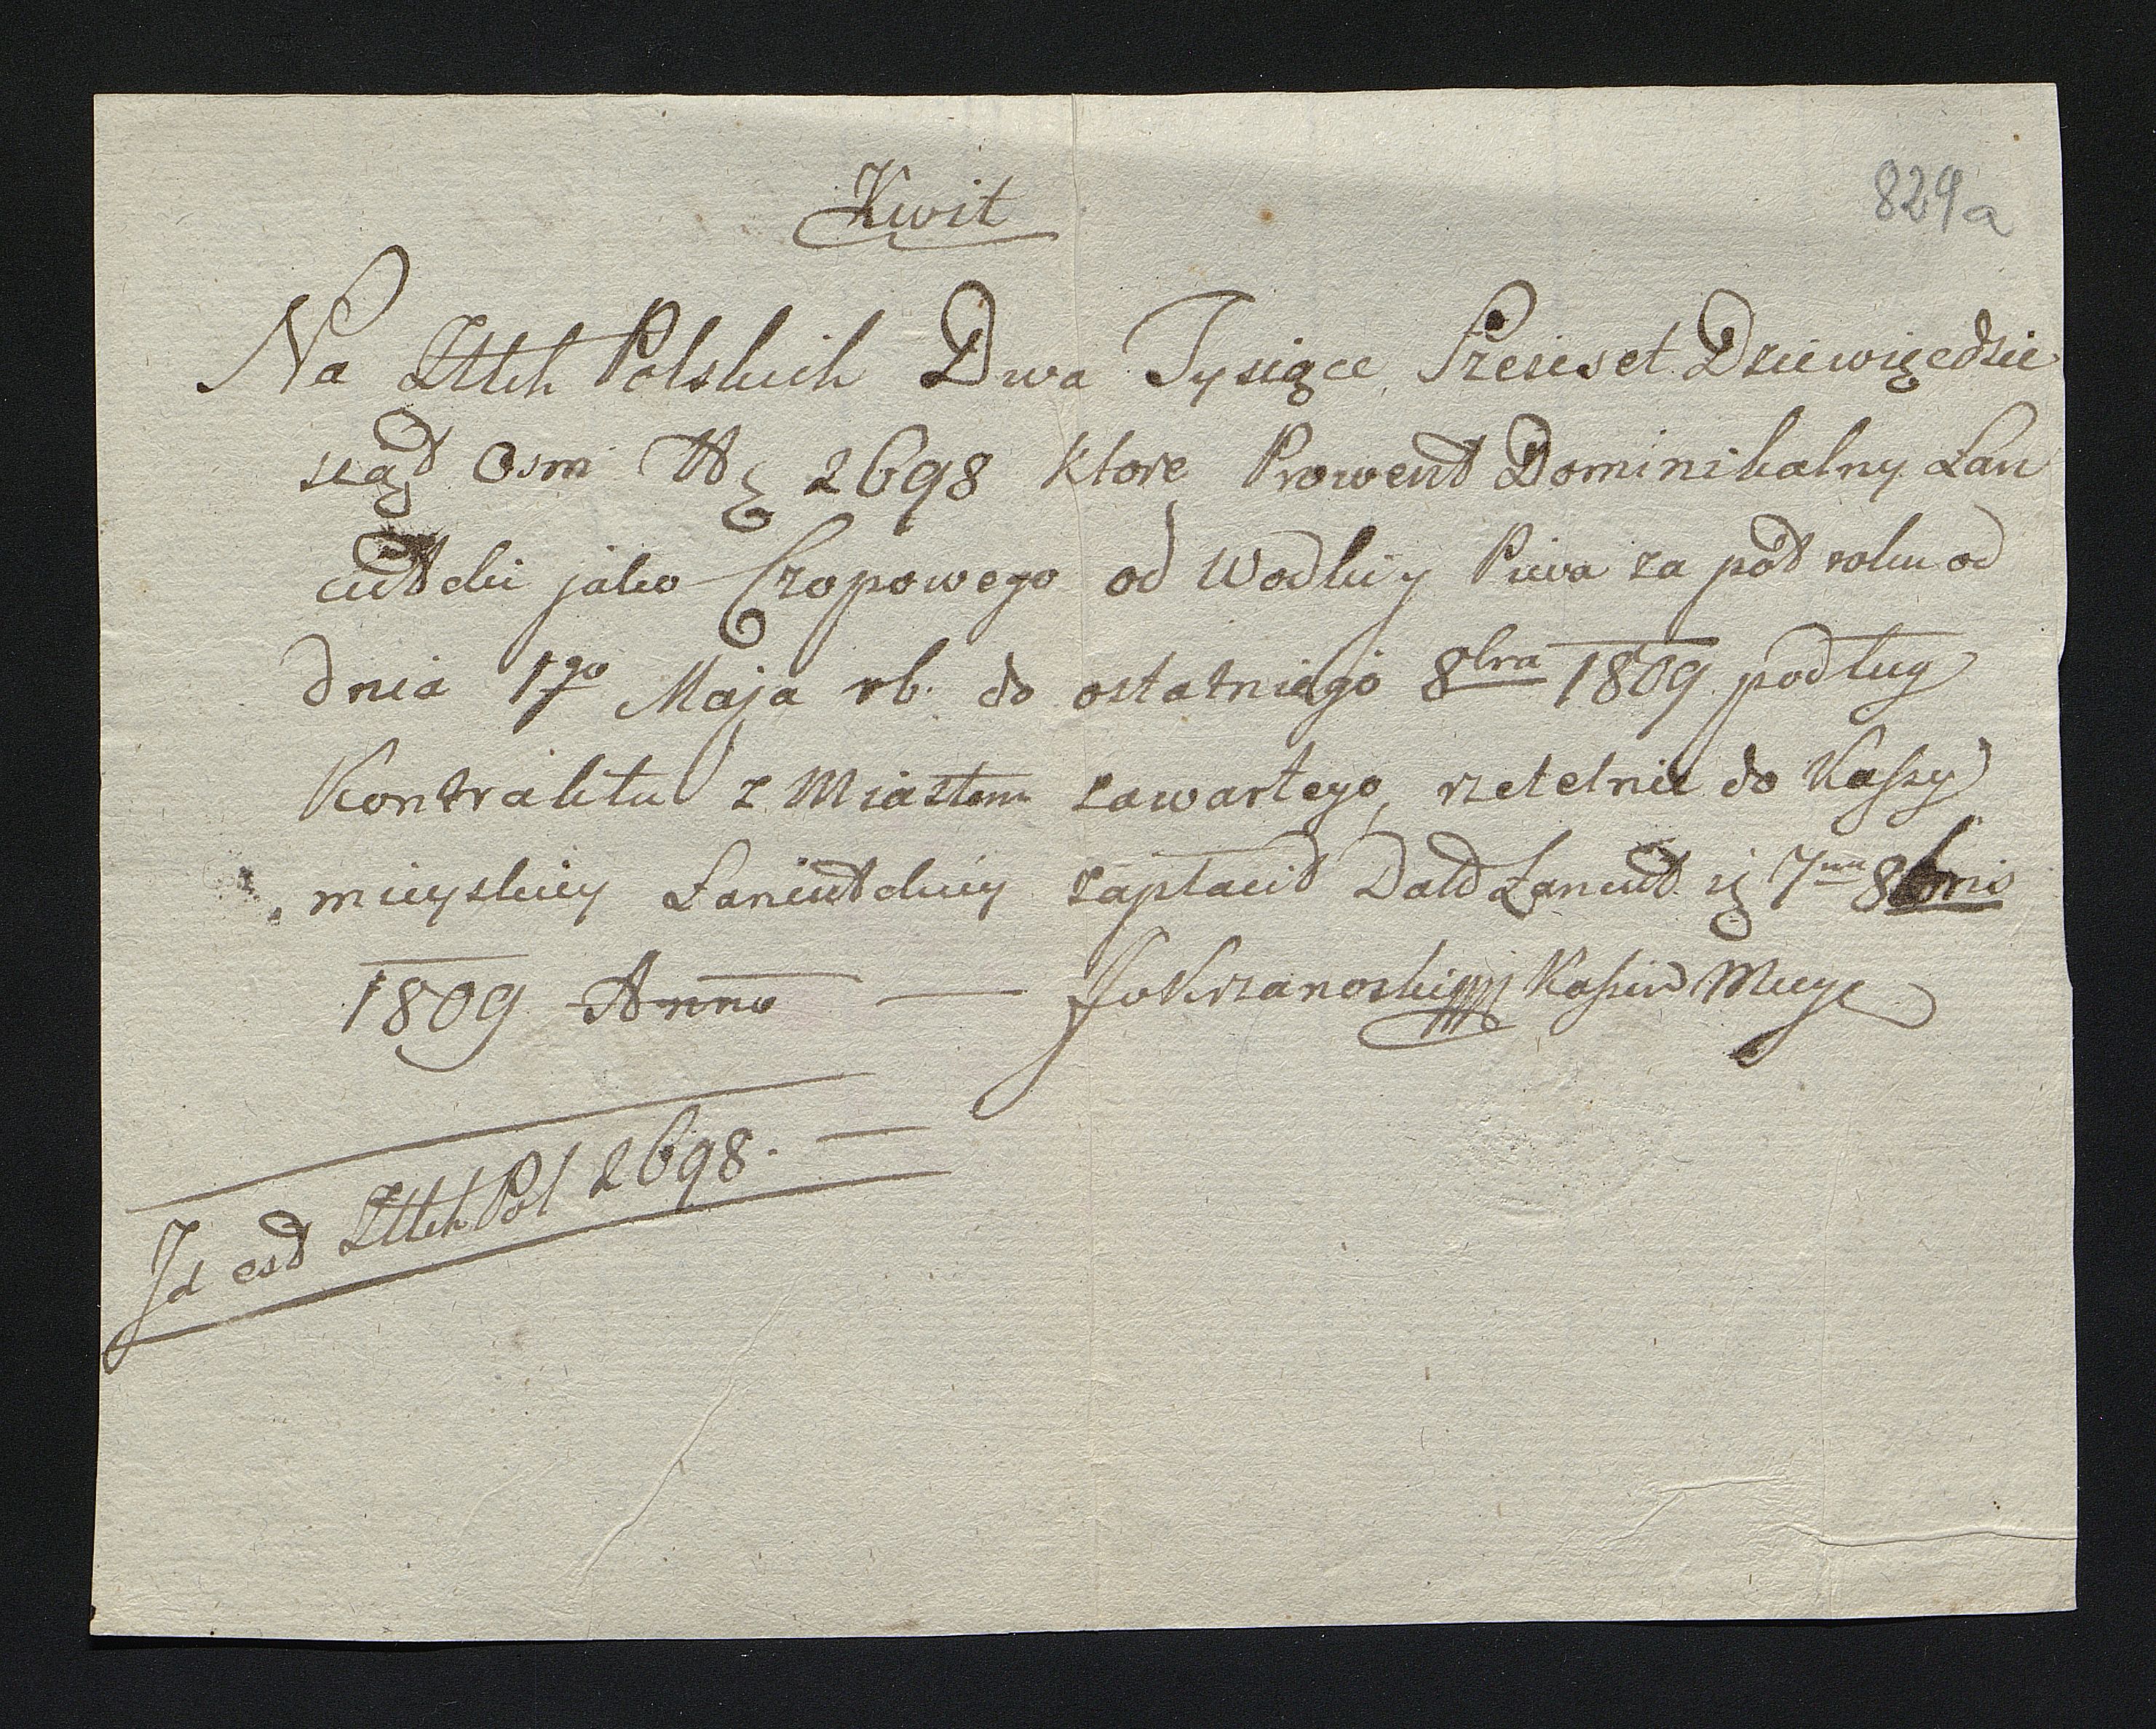 Kwit
829a
Na Zttch Polskich Dwa Tysiące Sześcset Dziewięcdzie
siąt Osm 2698 ktore Prowent Dominikalny Lan
cutcki jako Czopowego od Wodki y Piwa za pół roku od
dnia 1go Maja rb. do ostatniego 8bra 1809 podług
Kontraktu z Miastem zawartego, rzetelnie do Kassy
mieyskiey Łancutckiey zapłacił Datt Łancut 7ma 8bris
1809 Anno — Krzanoski Kassier Mieyc
Id est Zttch Pol 2698. —